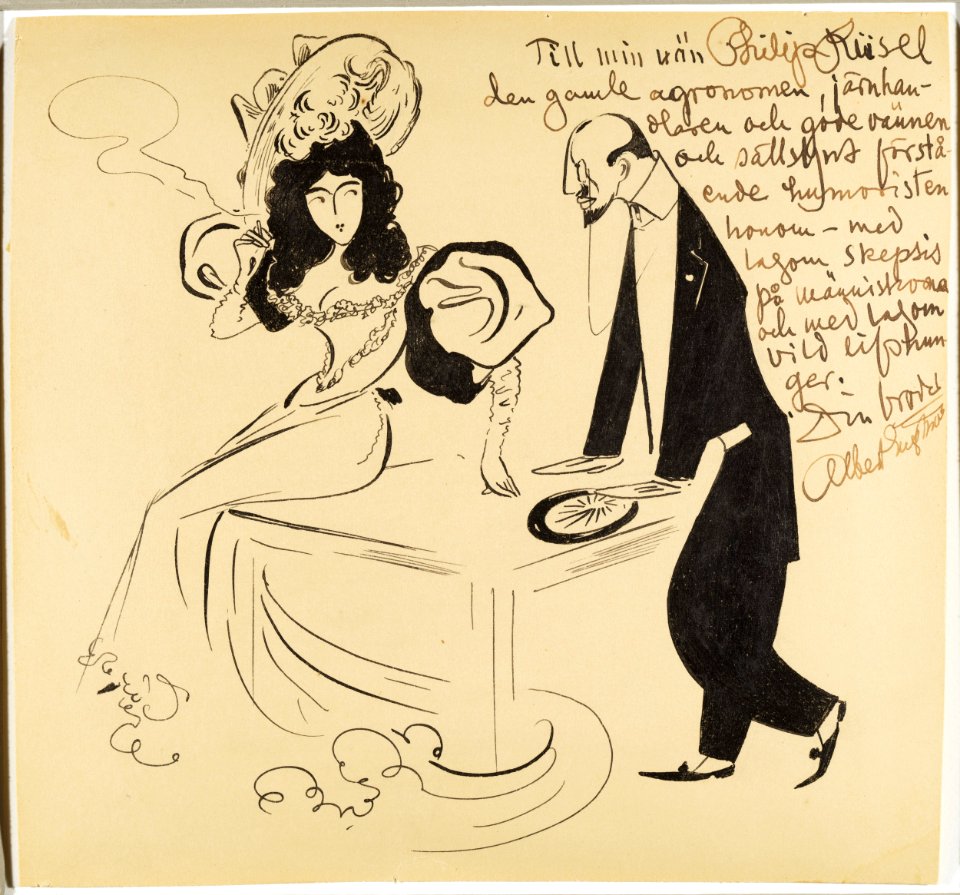 Till min vän Philip Küsel
den gamle agronomen, järnhan-
dlaren och gode vännen
och sällsynt förstå-
ende humoristen
honom – med
lagom skepsis
på människorna
och med lagom
vild lifshun-
ger.
Din broder
Albert Engström